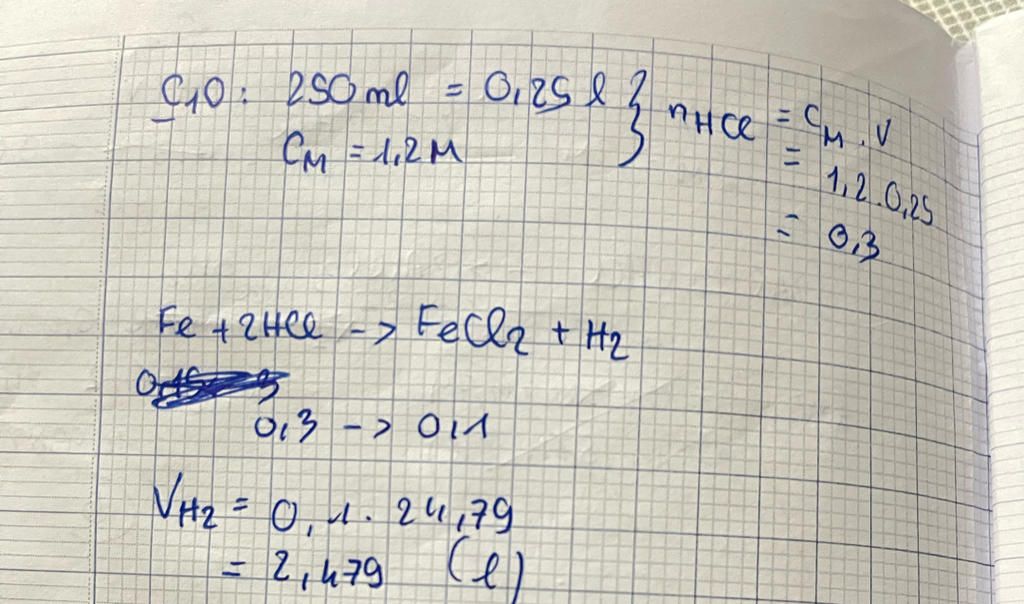 C10: 250ml = 0,25 l } nHCl = CM . V
CM = 1,2M
= 1,2 . 0,25
= 0,3
Fe + 2HCl -> FeCl2 + H2
0,3 -> 0,1
VH2 = 0,1 . 24,79
= 2,479 (l)